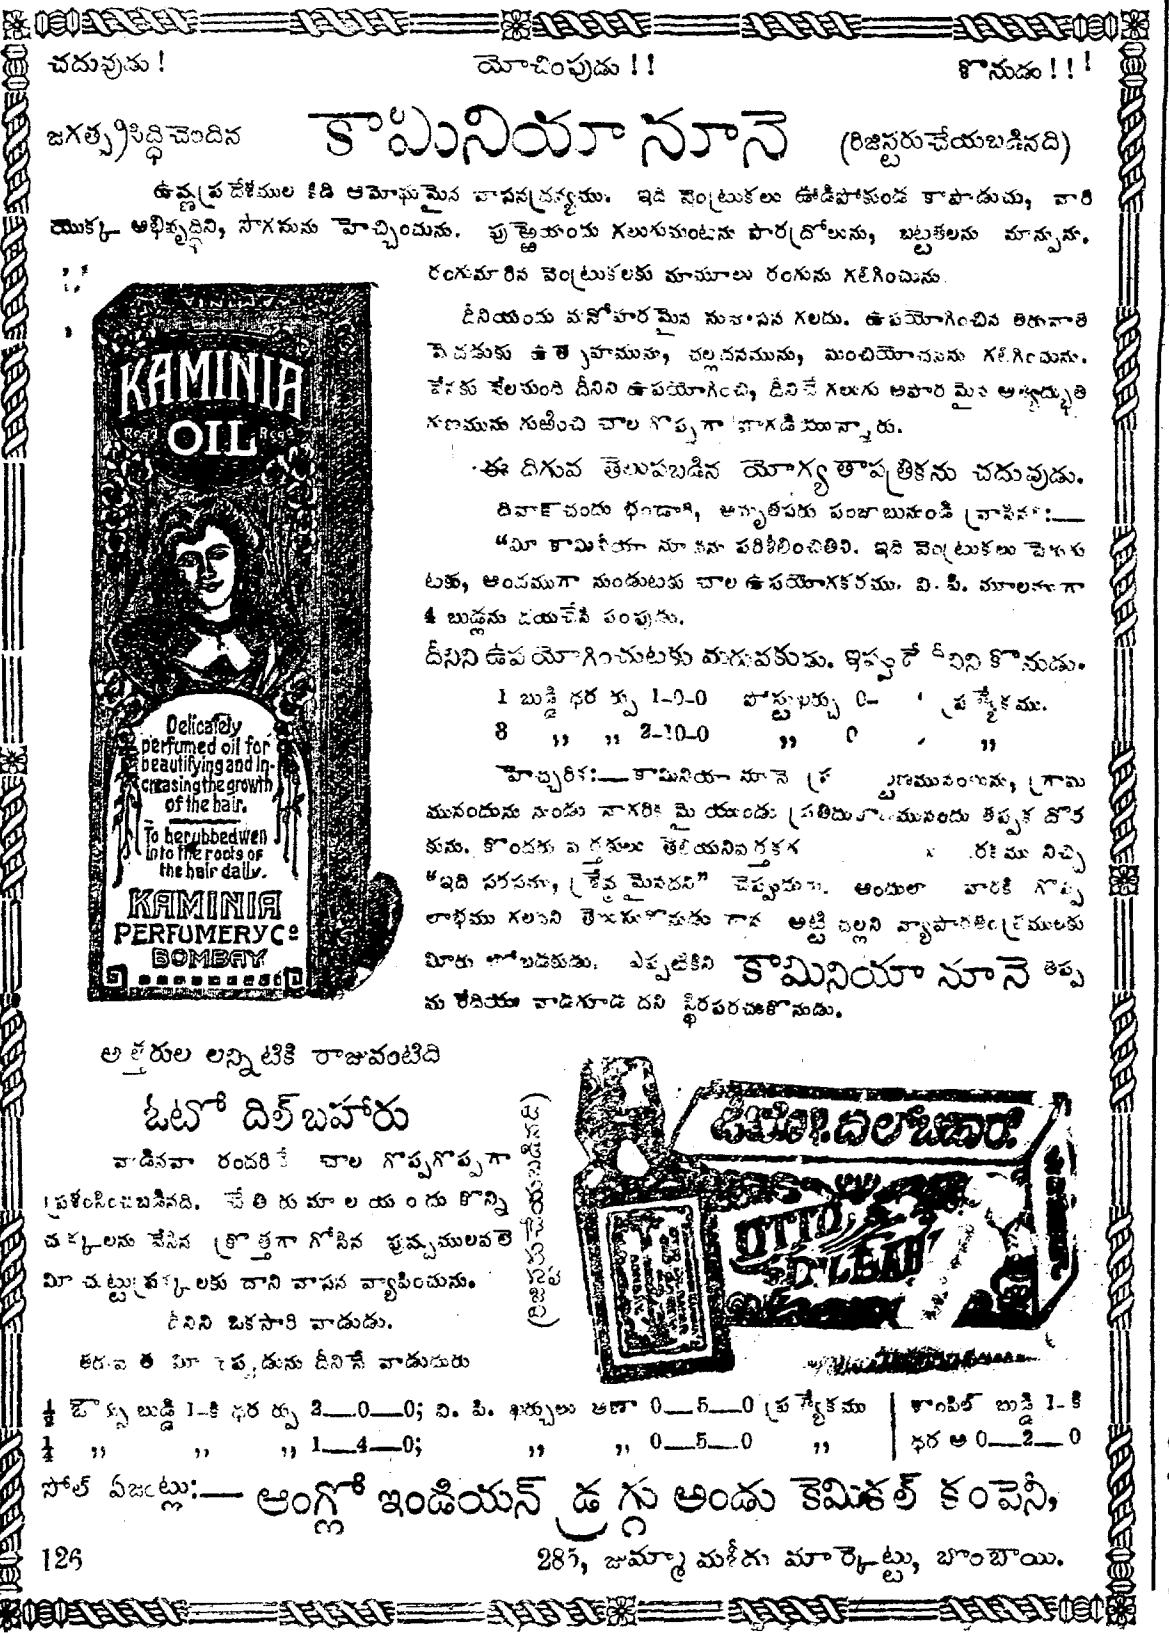 చదువుడు! యోచింపుడు!! కొనుడు!!!
జగత్ప్రసిద్ధిచెందిన కామినియా నూనె (రిజిస్టరుచేయబడినది)
ఉష్ణప్రదేశముల కిది ఆమోఘమైన వాసనద్రవ్యము. ఇది వెంట్రుకలు ఊడిపోకుండ కాపాడుచు, వాని
యొక్క అభివృద్ధిని, సొగసును హెచ్చించును. పుఱ్ఱెయందు గలుగుమంటను పారద్రోలును, బట్టతలను మాన్పును.
రంగుమారిన వెంట్రుకలకు మామూలు రంగును గలిగించును
దీనియందు మనోహరమైన సువాసన గలదు. ఉపయోగించిన తరువాత
మెదడుకు ఉత్సాహమును, చల్లదనమును, మంచియోచనను గలిగించును.
వేనకు వేలమంది దీనిని ఉపయోగించి, దీనిచే గలుగు అపారమైన అత్యద్భుత
గుణమును గుఱించి చాల గొప్పగా పొగడియున్నారు.
ఈ దిగువ తెలుపబడిన యోగ్యతాపత్రికను చదువుడు.
దివాక్‌చందు భండారి, అమృతసరు పంజాబునుండి వ్రాసిన:—
“మీ కామినియా నూనెను పరిశీలించితిని. ఇది వెంట్రుకలు పెరుగు
టకు, అందముగా నుండుటకు చాల ఉపయోగకరము. వి. పి. మూలముగా
4 బుడ్లను దయచేసి పంపుడు.
దీనిని ఉపయోగించుటకు మరువకుడు. ఇప్పుడే దీనిని కొనుడు.
1 బుడ్డి ధర ర్పు 1-0-0 పోస్టుఖర్చు 0- ప్రత్యేకము.
3 ,, ,, 2-10-0 ,, 0 ,,
హెచ్చరిక:— కామినియా నూనె గ్రామ
మునందును నుండు నాగరికమై యుండు ప్రతిదుకాణమునందు తప్పక దొర
కును. కొందరు వర్తకులు తెలియని నిచ్చి
“ఇది సరసము, శ్రేష్ఠమైనదని” చెప్పుదురు. అందులో వారికి గొప్ప
లాభము గలదని తెలుసుకొనుడు గాన అట్టి చల్లని వ్యాపారతంత్రములకు
మీరు లోబడకుడు. ఎప్పటికిని కామినియా నూనె తప్ప
మ రేదియు వాడగూడ దని స్థిరపరచుకొనుడు.
KAMINIA
Regd OIL Regd
Delicately
perfumed oil for
beautifying and in-
creasing the growth
of the hair.
To be rubbed well
into the roots of
the hair daily.
KAMINIA
PERFUMERY Co
BOMBAY
అత్తరుల లన్నిటికి రాజువంటిది
ఓటో దిల్‌బహారు
(రిజిస్టరుచేయబడినది)
వాడినవా రందరిచే చాల గొప్పగొప్పగా
ప్రశంసించబడినది. చేతి రుమాలయందు కొన్ని
చుక్కలను వేసిన క్రొత్తగా గోసిన పువ్వులవలె
మీ చుట్టుప్రక్కలకు దాని వాసన వ్యాపించును.
దీనిని ఒకసారి వాడుడు.
తరువాత మీ రెప్పుడును దీనినే వాడుదురు
OTTO
DILBAHAR
½ ఔన్సు బుడ్డి 1-కి ధర ర్పు 2—0—0; వి. పి. ఖర్చులు అణా 0—5—0 ప్రత్యేకము శాంపిల్ బుడ్డి 1-కి
¼ ,, ,, ,, 1—4—0; ,, ,, 0—5—0 ,, ధర అ 0—2—0
సోల్ ఏజంట్లు:— ఆంగ్లో ఇండియన్ డ్రగ్గు అండు కెమికల్ కంపెనీ,
126 285, జుమ్మా మశీదు మార్కెట్టు, బొంబాయి.